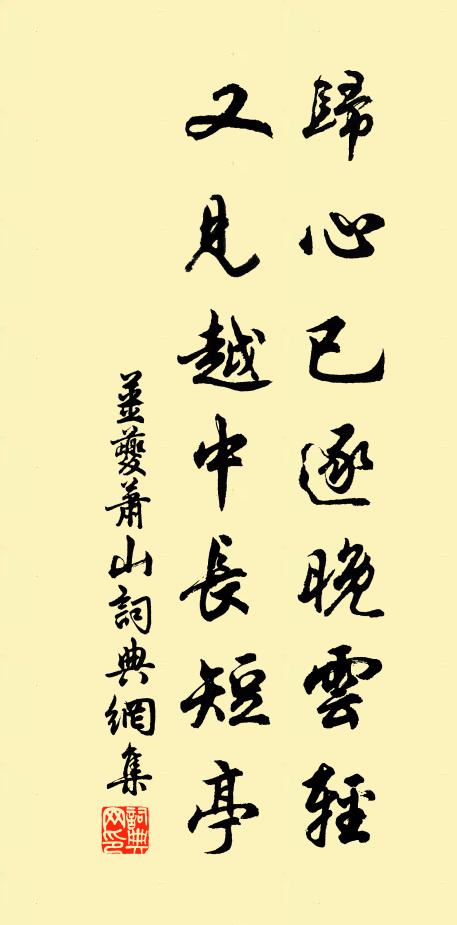 歸心已逐晚雲輕
又見越中長短亭
薑夔蕭山詞典網集
詞典網印